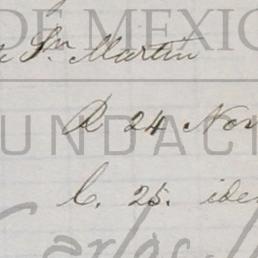 DE MEXIC
Sn. Martin
R 24 Nov
UNDACI
C. 25. idem
Carlos